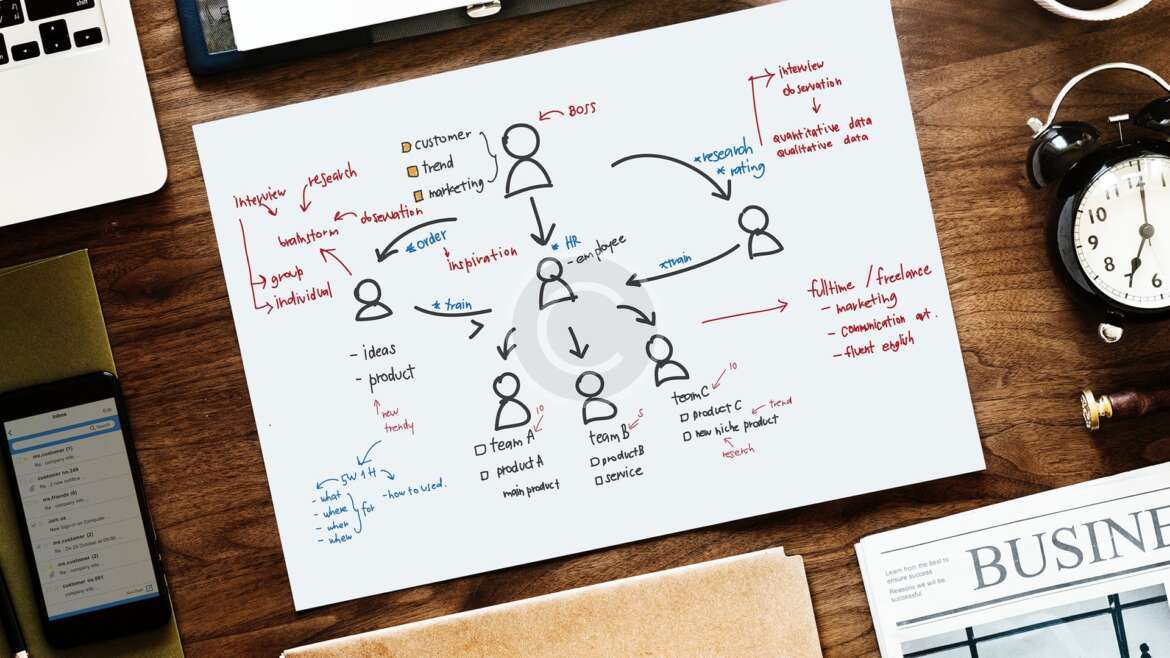 BOSS
customer
trend
marketing
interview
observation
quantitative data
qualitative data
*research
* rating
interview
research
brainstorm
observation
group
individual
*order
inspiration
* HR
- employee
*train
*train
- ideas
- product
new
trendy
fulltime / freelance
- marketing
- communication art.
- fluent english
10
team A
product A
main product
5
team B
product B
service
10
team C
product C
trend
new niche product
5W1H
- what
- where
- when
for
- how to used.
Inbox
Edit
Search
BUSINE
Learn from the best to
ensure success
Reasons we will be
successful
10
9
8
7
6
12
1
2
3
4
5